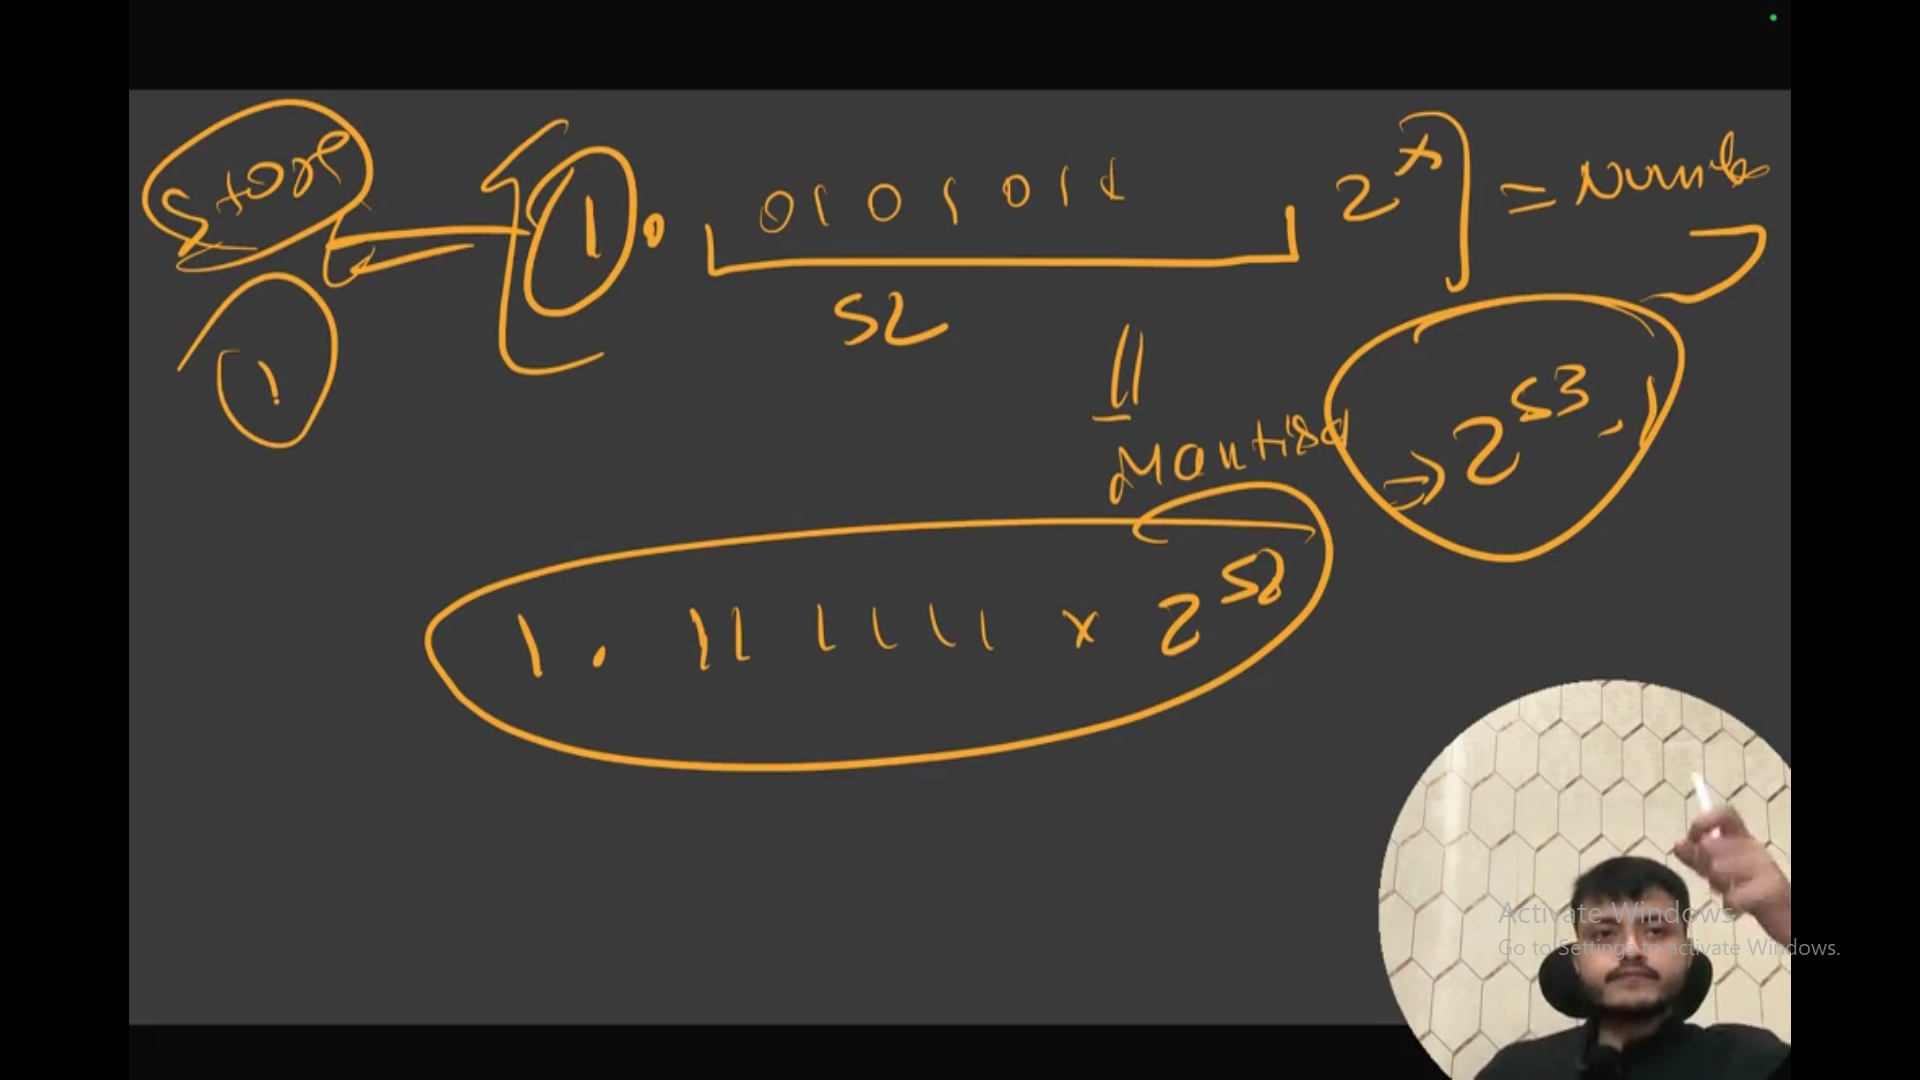 Store
1 . 01 0 1 0 1 1 2^x = Number
52
1
2^53 - 1
Mantisa
1 . 11 1 1 1 1 x 2^52
Activate Windows
Go to Settings to activate Windows.